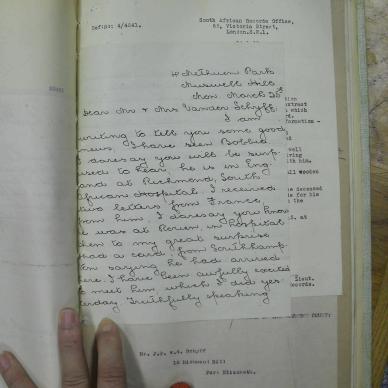 Ref:No: 4/4041.
South African Records Office,
Victoria Street,
London.S.W.1.
4 Methuen Park
Muswell Hill
Mon. March 25th
Dear Mr & Mrs Vander Schyff
I am
writing to tell you some good
news, I have seen Bobbie.
I daresay you will be surp-
rised to hear, he is in Eng-
land at Richmond, South
African Hospital. I received
two letters from France,
from him, I daresay you know
he was at Rouen, in hospital
then to my great surprise
had a card, from Southamp-
ton saying he had arrived
here. I have been awfully excited
to meet him, which I did yes-
terday. Truthfully speaking
extract
which
formation -
well
with him.
wooden
deceased
for his
the
at
Lieut.
Records.
Mr. J.
Richmond Hill
Port Elizabeth.